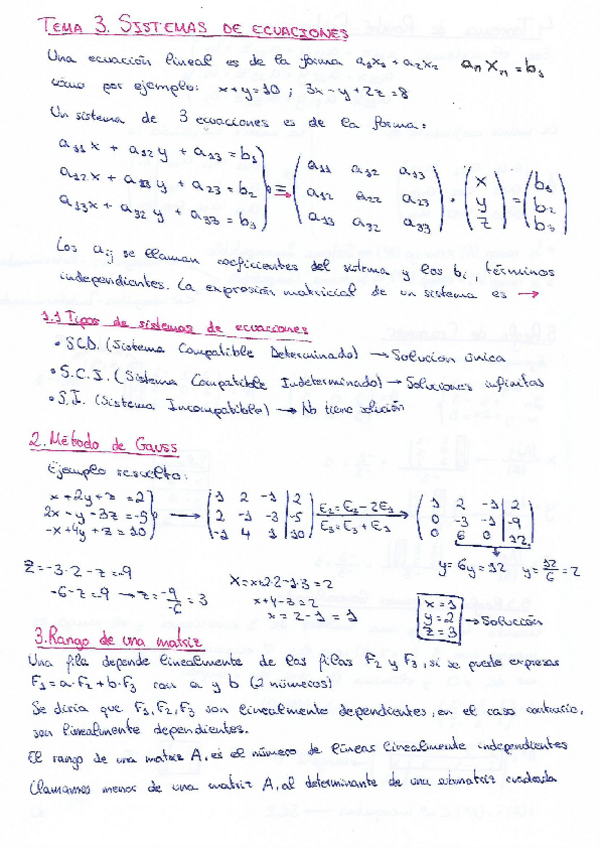 TEMA 3. SISTEMAS DE ECUACIONES
Una ecuación lineal es de la forma a₁x₁ + a₂x₂ aₙxₙ = b₁
cómo por ejemplo: x+y=10 ; 3x-y+2z=8
Un sistema de 3 ecuaciones es de la forma:
a₁₁x + a₁₂y + a₁₃ = b₁
a₁₂x + a₂₃y + a₂₃ = b₂
a₁₃x + a₃₂y + a₃₃ = b₃
=
( a₁₁ a₃₂ a₁₃
a₁₂ a₂₂ a₂₃
a₁₃ a₃₂ a₃₃ )
·
( x
y
z )
=
( b₁
b₂
b₃ )
Los aᵢⱼ se llaman coeficientes del sistema y los bᵢ, términos
independiantes. La expresión matricial de un sistema es →
1.1 Tipos de sistemas de ecuaciones
• S.C.D. (Sistema Compatible Determinado) → Solucion única
• S.C.I. (Sistema Compatible Indeterminado) → Soluciones infinitas
• S.I. (Sistema Incompatible) → No tiene solución
2. Método de Gauss
Ejemplo resuelto:
x+2y+z=2
2x-y-3z=-5
-x+4y+z=10
→
( 1 2 -1 | 2
2 -1 -3 | -5
-1 4 1 | 10 )
E₂=E₂-2E₁
E₃=E₃+E₁
→
( 1 2 -1 | 2
0 -3 -1 | -9
0 6 0 | 12 )
y= 6y=12 y=12/6=2
z=-3·2-z=-9
-6-z=9 → z=-9/-6=3
X=x+2·2-1·3=2
x+4-3=2
x=2-1=1
x=1
y=2
z=3
→ Solución
3. Rango de una matriz
Una fila depende linealmente de las filas F₂ y F₃, si se puede expresar
F₁=a·F₂+b·F₃ con a y b (2 números)
Se diría que F₁, F₂, F₃ son linealmente dependientes, en el caso contrario,
son linealmente dependientes.
El rango de una matriz A, es el número de líneas linealmente independientes
Llamamos menor de una matriz A, al determinante de una submatriz cuadrada